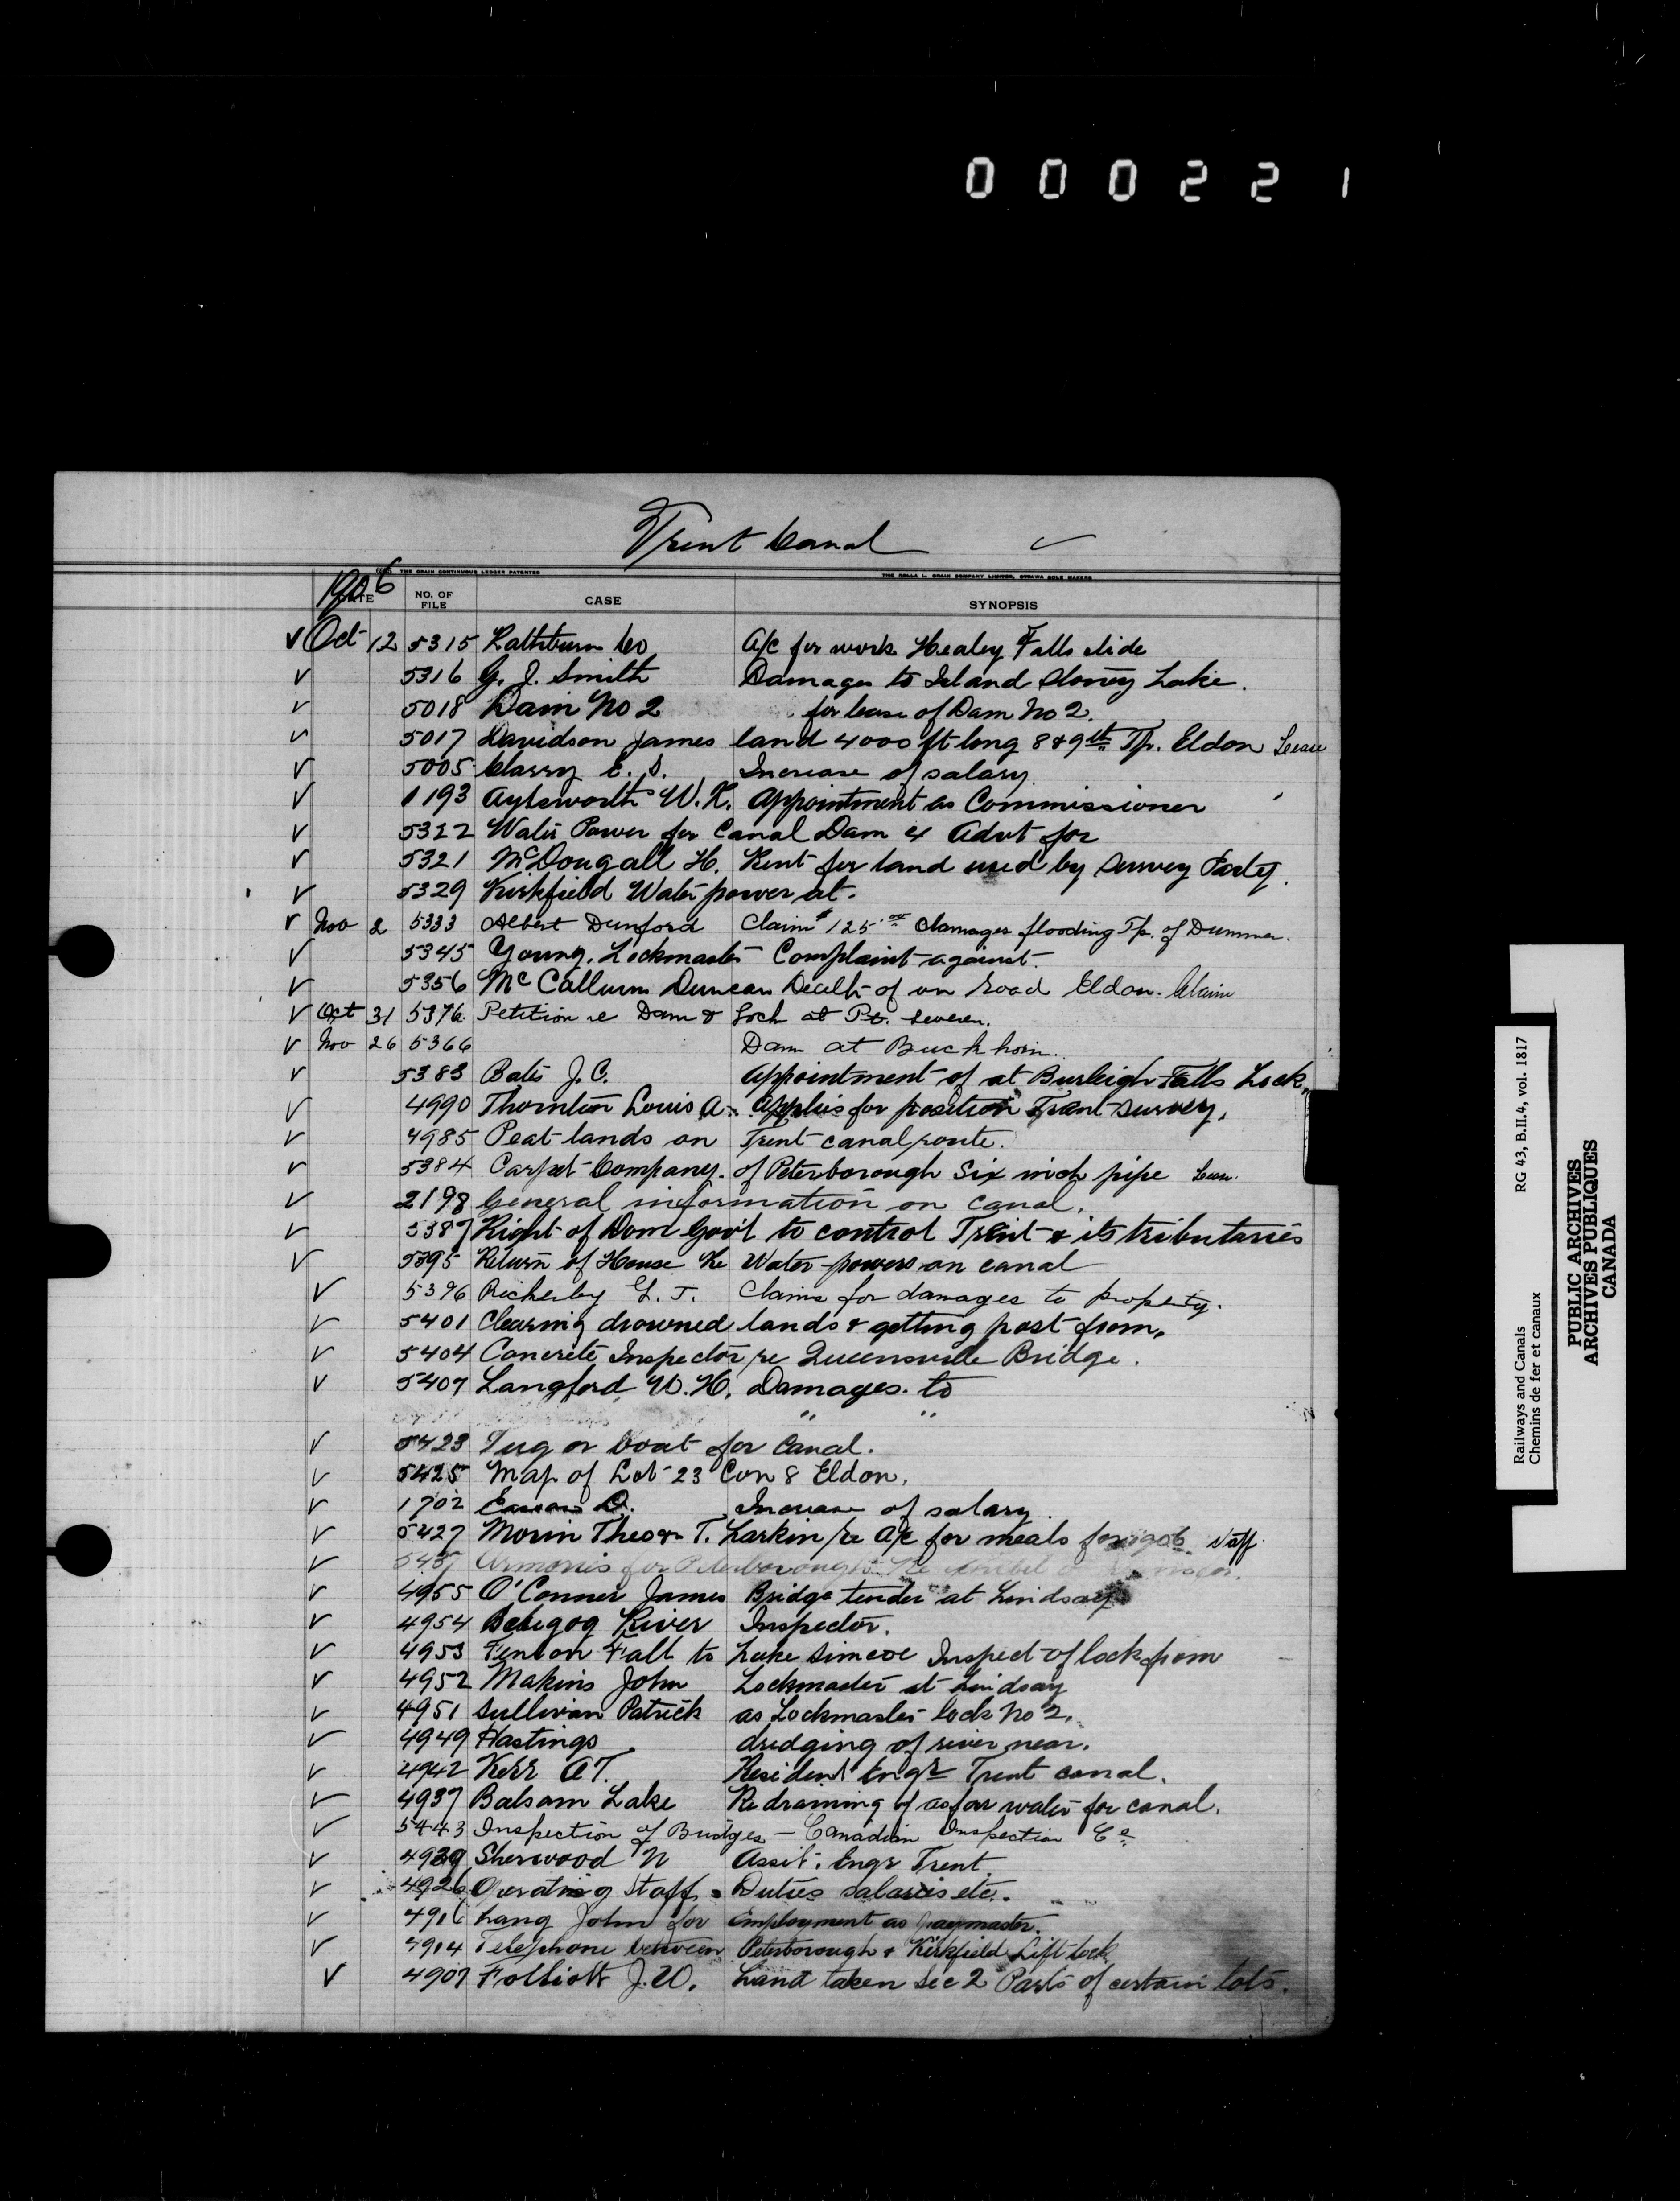 0 0 0 2 2 1
Trent Canal ✓
1906
THE GRAIN CONTINUOUS LEDGER PATENTED
THE ROLLA L. CRAIN COMPANY LIMITED, OTTAWA SOLE MAKERS
DATE NO. OF FILE CASE SYNOPSIS
✓ Oct 12 5315 Rathburn Co A/c for work Healey Falls slide
✓ 5316 G. J. Smith Damages to Island Stoney Lake.
✓ 5018 Dam No 2 for lease of Dam No 2.
✓ 5017 Davidson James land 4000 ft long 8 & 9th Tp. Eldon Lease
✓ 5005 Classy E. S. Increase of salary
✓ 1193 Aylsworth W. R. Appointment as Commissioner
✓ 5322 Water Power for Canal Dam 4 Advt for
✓ 5321 McDougall H. Rent for land used by Survey Party.
✓ 5329 Kirkfield Water power at.
✓ Nov 2 5333 Albert Dunford Claim $125.00 damages flooding Tp. of Dummer.
✓ 5345 Young, Lockmaster Complaint against.
✓ 5356 McCallum Duncan Death of on road Eldon. Claim
✓ Oct 31 5376 Petition re Dam & Lock at Pt. Severn.
✓ Nov 26 5366 Dam at Buckhorn.
✓ 5383 Bates J. C. Appointment of at Burleigh Falls Lock.
✓ 4990 Thornton Louis A. Applies for position Trent Survey.
✓ 4985 Peat lands on Trent canal route.
✓ 5384 Carpet Company. of Peterborough Six inch pipe Lease.
✓ 2198 General information on canal.
✓ 5387 Right of Dom Gov't to control Trent & its tributaries
✓ 5395 Return of House Re Water powers on canal
✓ 5396 Rickerby G. J. Claims for damages to property.
✓ 5401 Clearing drowned lands & getting post from.
✓ 5404 Concrete Inspector re Queensville Bridge.
✓ 5407 Langford W. H. Damages to
" "
✓ 5423 Tug or boat for Canal.
✓ 5425 Map of Lot 23 Con 8 Eldon.
✓ 1702 D. Increase of salary
✓ 5427 Morin Theo & T. Larkin re A/c for meals for 1906 staff.
✓ Armories for Peterborough Re
✓ 4955 O'Conner James Bridge tender at Lindsay
✓ 4954 Scugog River Inspector.
✓ 4953 Fenlon Fall to Lake Simcoe Inspect of lock from
✓ 4952 Makins John Lockmaster at Lindsay
✓ 4951 Sullivan Patrick as Lockmaster lock No 2.
✓ 4949 Hastings dredging of river near.
✓ 4942 Kerr A T. Resident Engr Trent canal.
✓ 4937 Balsam Lake Re draining of as for water for canal.
✓ 5443 Inspection of Bridges - Canadian Inspection Co
✓ 4939 Sherwood N Assit. Engr Trent.
✓ 4926 Operating Staff. Duties salaries etc.
✓ 4916 Lang John for Employment as paymaster.
✓ 4914 Telephone between Peterborough & Kirkfield Lift lock
✓ 4907 Folliott J. W. Land taken Sec 2 Parts of certain lots.
Railways and Canals RG 43, B.II.4, vol. 1817
Chemins de fer et canaux
PUBLIC ARCHIVES
ARCHIVES PUBLIQUES
CANADA